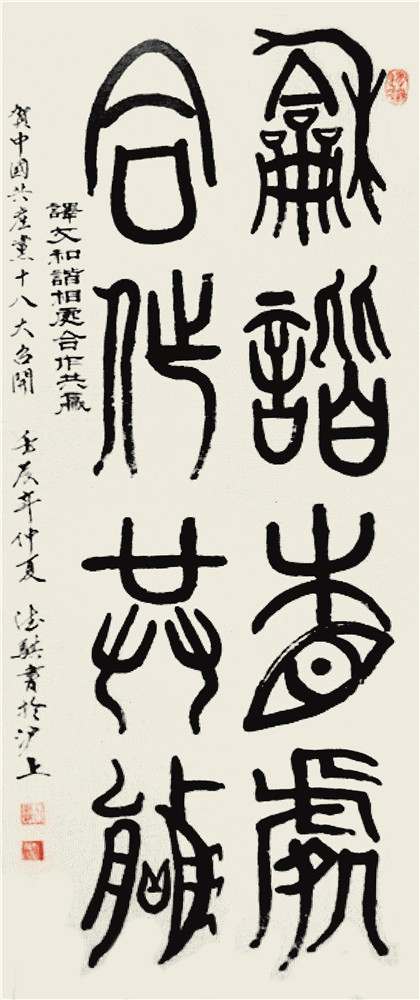 龢諧相處
合作共贏
譯文和諧相處合作共贏
賀中國共產黨十八大召開 壬辰年仲夏 書於沪上